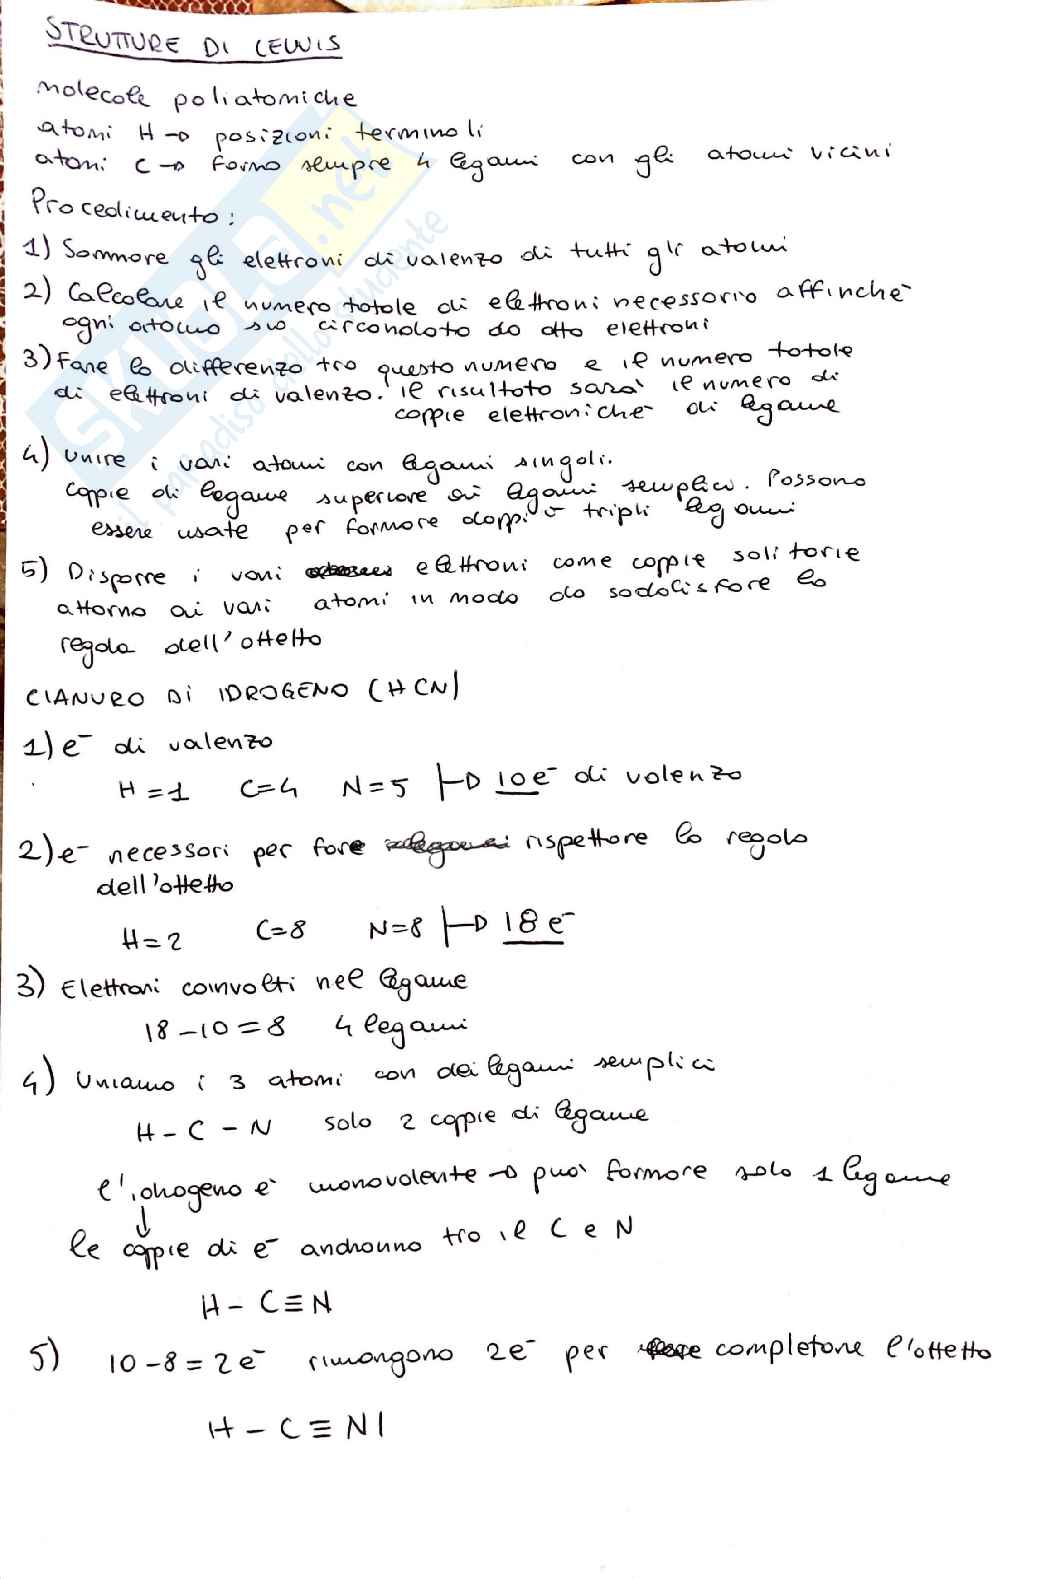 STRUTTURE DI LEWIS
Molecole poliatomiche
atomi H → posizioni terminali
atomi C → forma sempre 4 legami con gli atomi vicini
Procedimento:
1) Sommare gli elettroni di valenza di tutti gli atomi
2) Calcolare il numero totale di elettroni necessario affinchè
ogni atomo sia circondato da otto elettroni
3) Fare la differenza tra questo numero e il numero totale
di elettroni di valenza. il risultato sarà il numero di
coppie elettroniche di legame
4) Unire i vari atomi con legami singoli.
Coppie di legame superiore ai legami semplici. Possono
essere usate per formare doppi o tripli legami
5) Disporre i vari elettroni come coppie solitarie
attorno ai vari atomi in modo da soddisfare la
regola dell'ottetto
CIANURO DI IDROGENO (HCN)
1) e⁻ di valenza
H=1 C=4 N=5 → 10e⁻ di valenza
2) e⁻ necessari per fare rispettare la regola
dell'ottetto
H=2 C=8 N=8 → 18 e⁻
3) Elettroni coinvolti nel legame
18-10=8 4 legami
4) Uniamo i 3 atomi con dei legami semplici
H-C-N solo 2 coppie di legame
l'idrogeno è monovalente → può formare solo 1 legame
↓
le coppie di e⁻ andranno tra il C e N
H-C≡N
5) 10-8=2e⁻ rimangono 2e⁻ per completare l'ottetto
H-C≡N|
SKUOLA.net
il paradiso dello studente